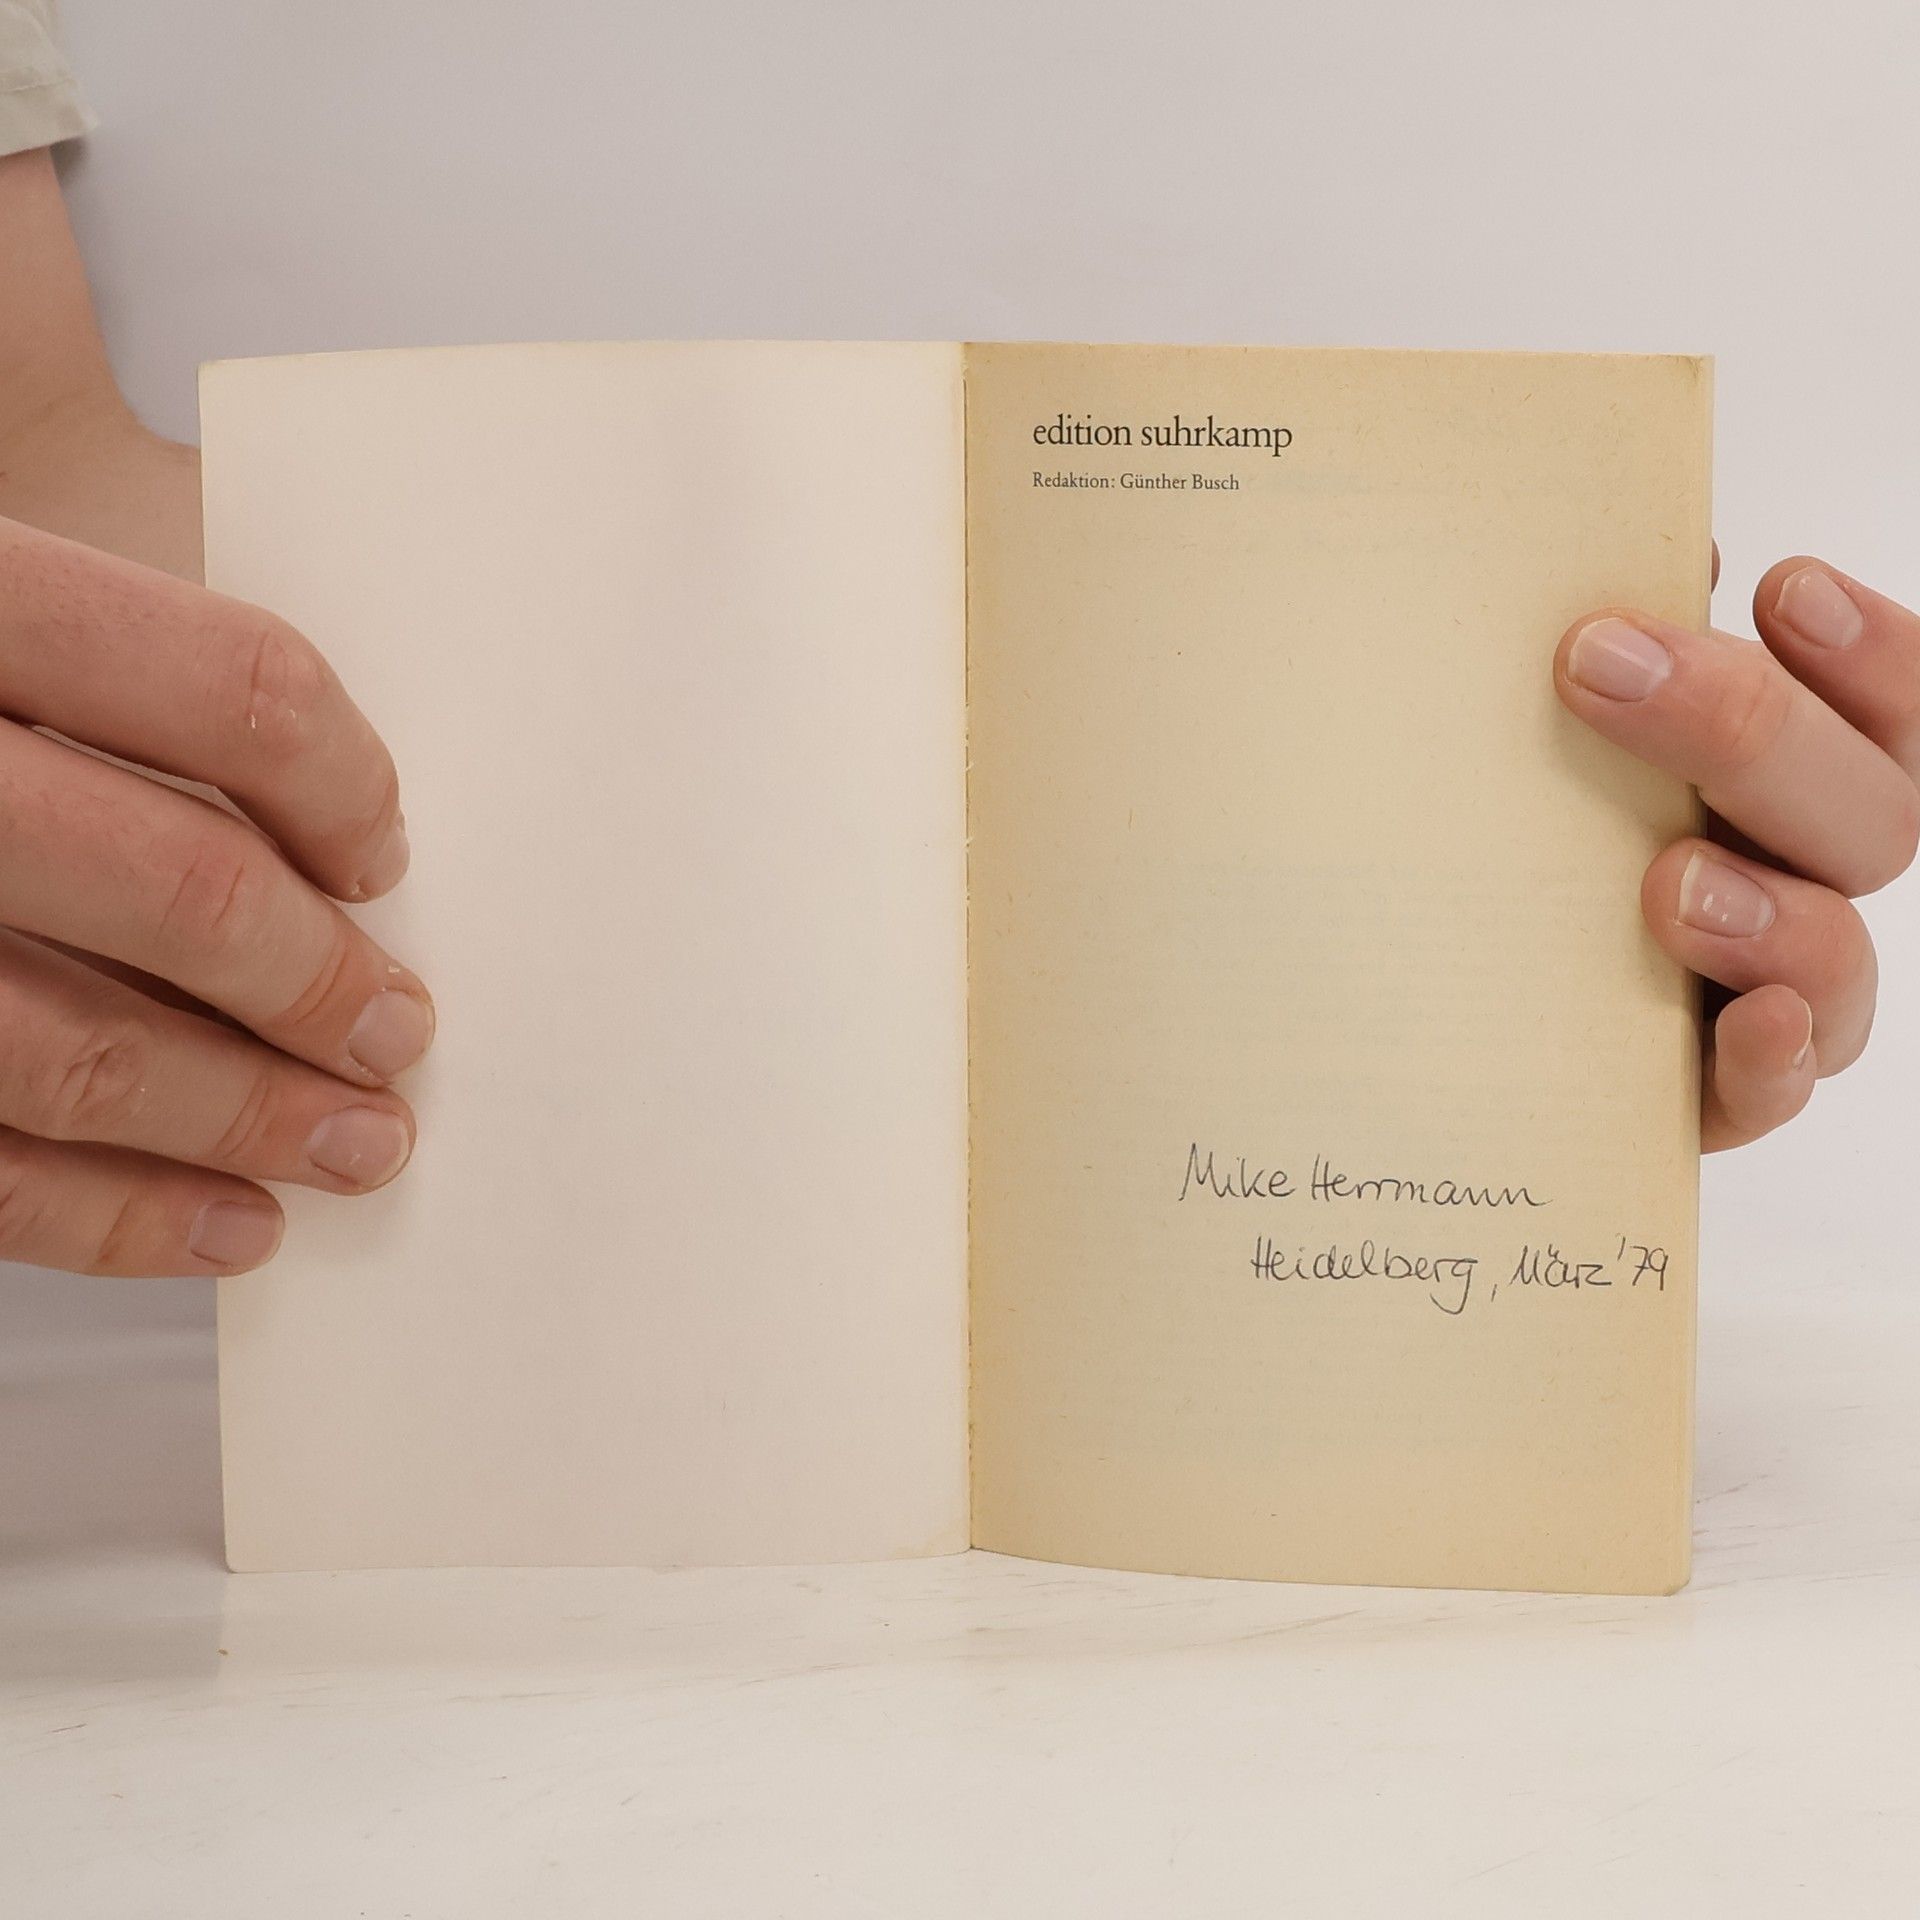 edition suhrkamp
Redaktion: Günther Busch
Mike Herrmann
Heidelberg, März '79